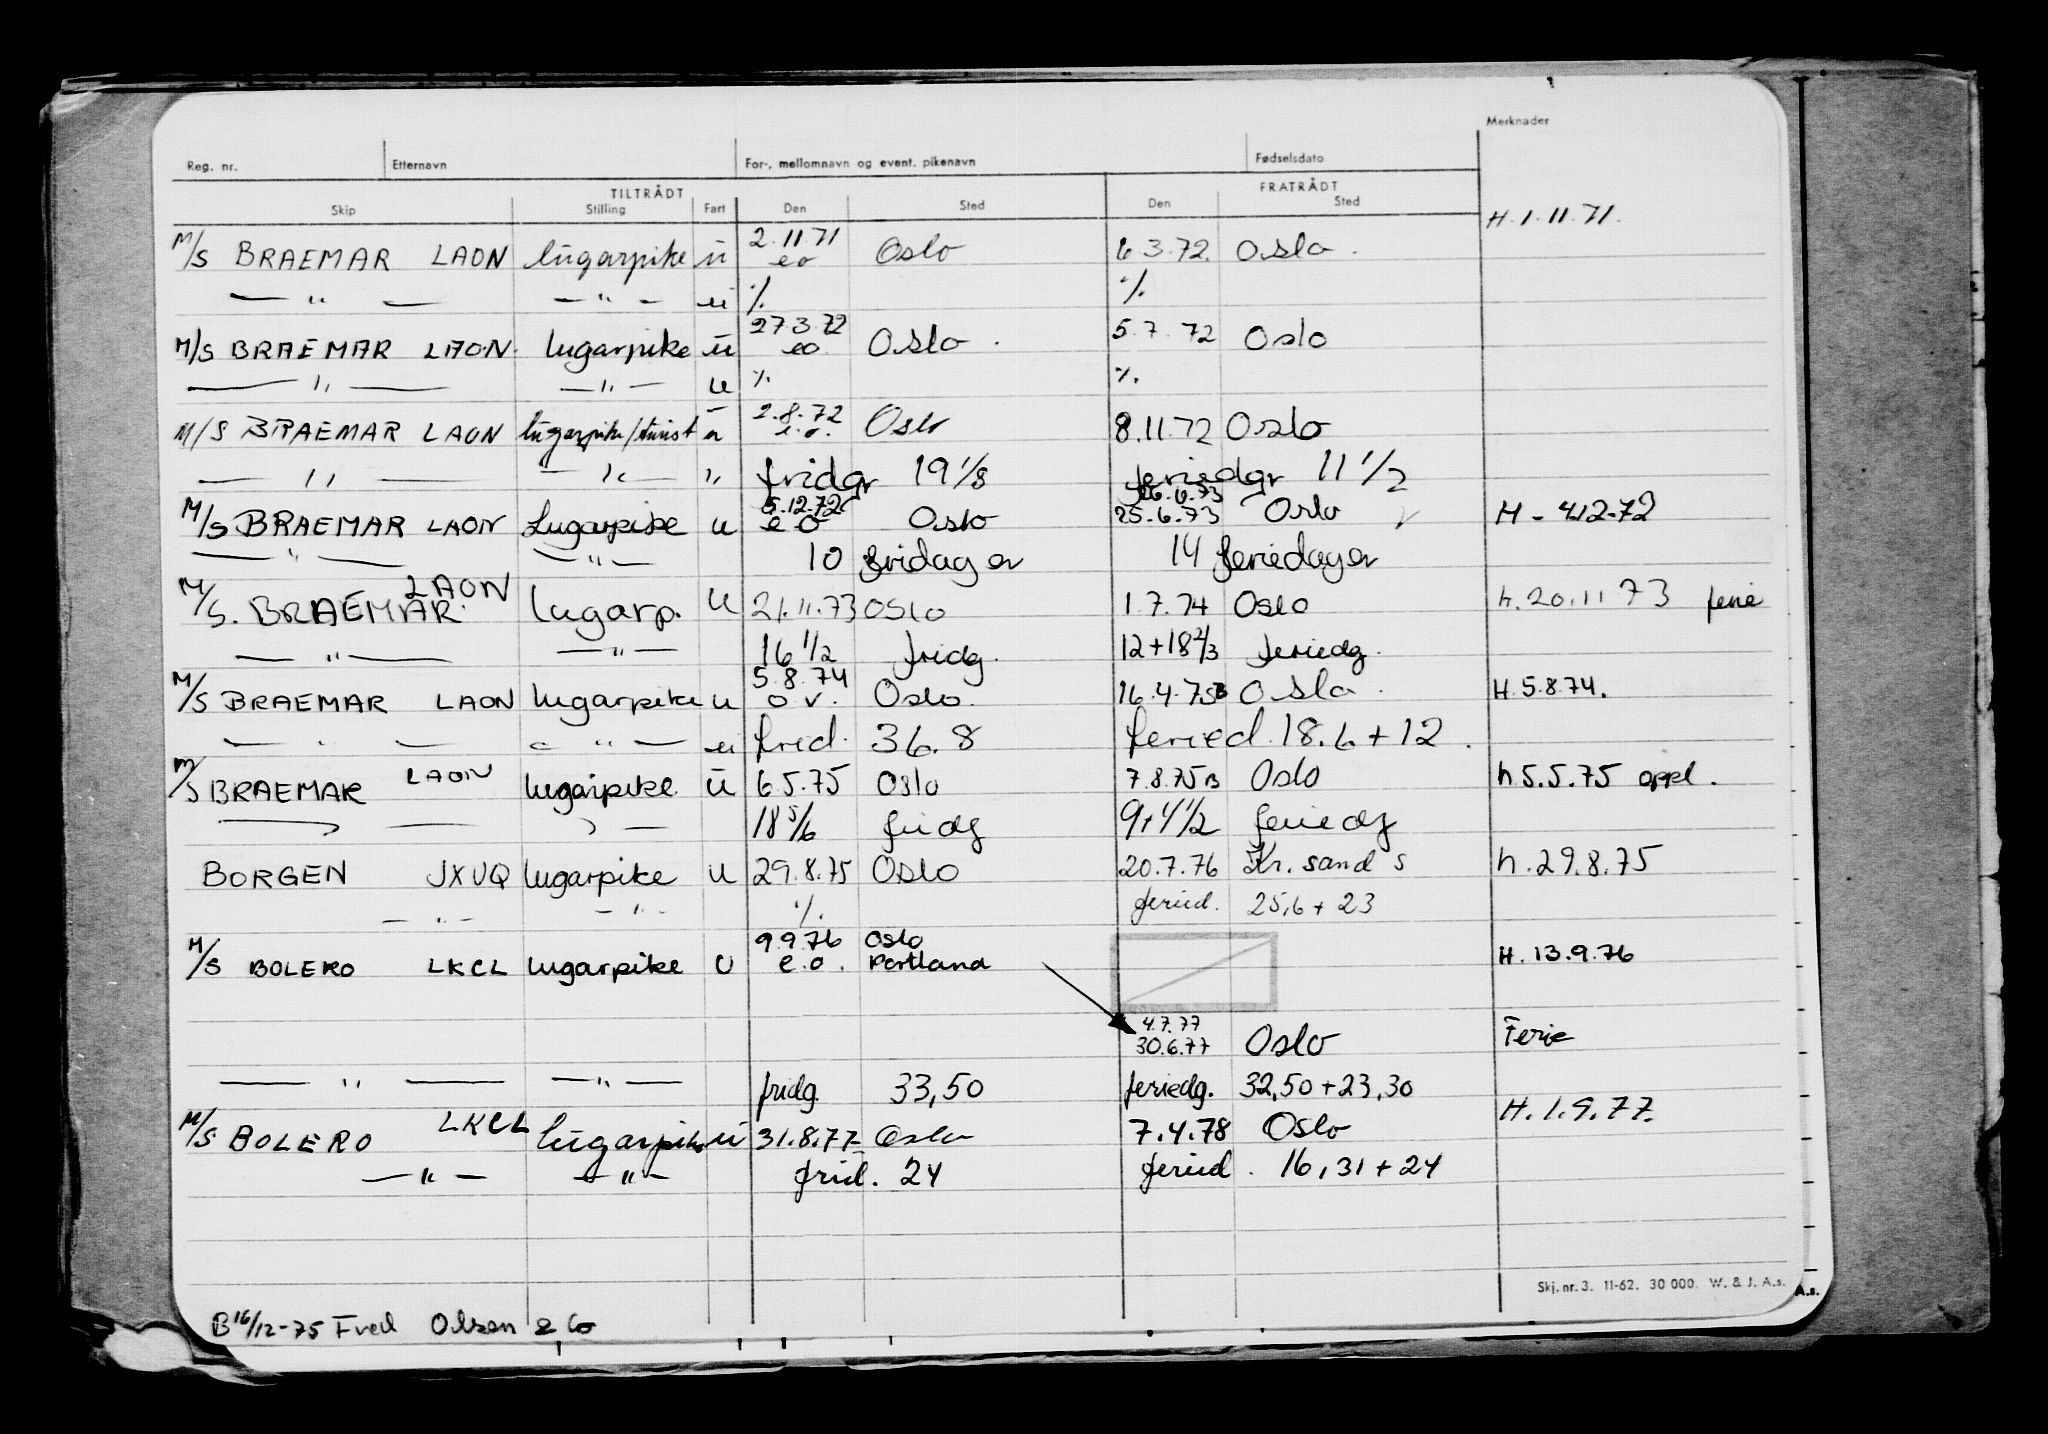 Merknader
Reg. nr. Etternavn For-, mellomnavn og event. pikenavn Fødselsdato
TILTRÅDT FRATRÅDT
Skip Stilling Fart Den Sted Den Sted
H. 1.11.71.
M/S BRAEMAR LAON lugarpike u 2.11.71 eo Oslo 6.3.72. Oslo.
— " — — " — u % %
M/S BRAEMAR LAON. lugarpike u 27.3.72 eo. Oslo. 5.7.72 Oslo
— " — — " — u %. %.
M/S BRAEMAR LAON lugarpike/turist u 2.8.72 e.o. Oslo 8.11.72 Oslo
— " — — " — " fridgr 19 1/3 feriedgr 11 1/2
M/S BRAEMAR LAON Lugarpike u 5.12.72 e o Oslo 26.6.73 25.6.73 Oslo H - 4.12-72
— " — — " — 10 fridager 14 feriedager
M/S. BRAEMAR. LAON lugarp. u 21.11.73 Oslo 1.7.74 Oslo h.20.11 73 ferie
— " — — " — 16 1/2 fridg. 12+18 2/3 feriedg.
M/S BRAEMAR LAON lugarpike u 5.8.74 o v. Oslo. 16.4.75B Oslo. H.5.8.74.
— " — — " — u frid. 36.8 feried. 18.6 + 12.
M/S BRAEMAR LAON lugarpike u 6.5.75 Oslo 7.8.75B Oslo h.5.5.75 oppl.
— " — — " — 18 5/6 fridg 9+4 1/2 feriedg
BORGEN JXUQ lugarpike u 29.8.75 Oslo 20.7.76 Kr. sand s h.29.8.75
— " — — " — %. feried. 25,6 + 23
M/S BOLERO LKCL lugarpike U 9.9.76 e.o. Oslo Portland H. 13.9.76
4.7.77 30.6.77 Oslo Ferie
— " — — " — fridg. 33,50 feriedg. 32,50 + 23,30
M/S BOLERO LKCL lugarpike u 31.8.77 Oslo 7.4.78 Oslo H. 1.9.77.
— " — — " — frid. 24 feried. 16,31 + 24
Skj. nr. 3. 11-62. 30 000. W. & J. A.s. A.s.
B 16/12-75 Fred Olsen & Co